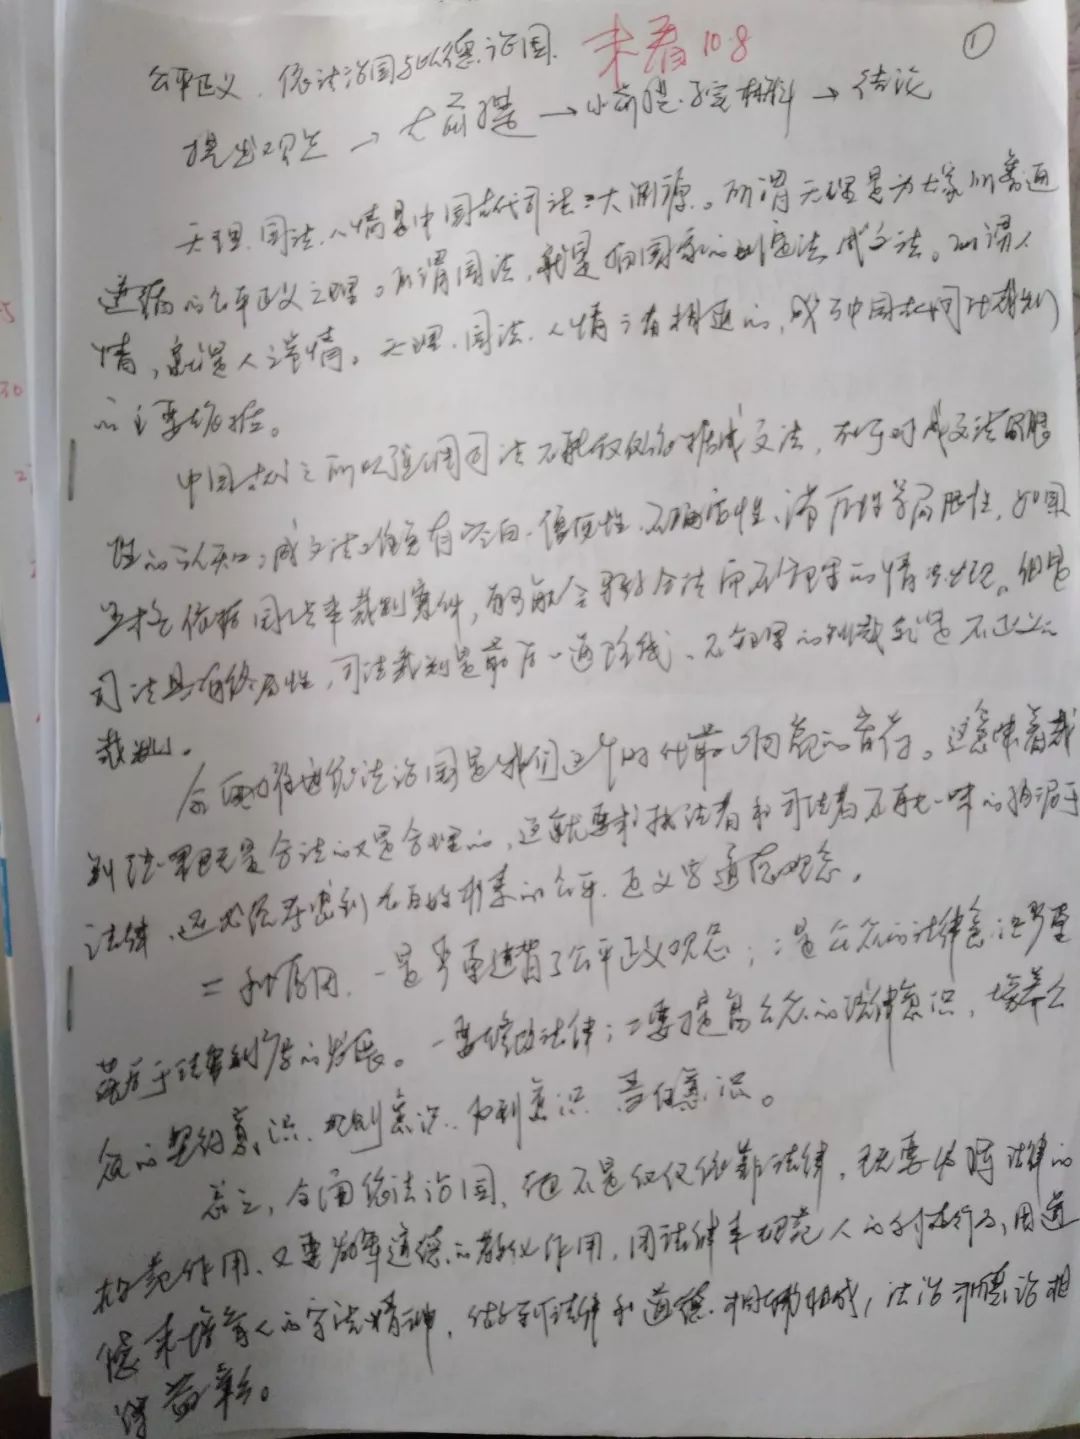 公平正义、依法治国与以德治国. 未看10.8 ①
提出观点 → 大前提 → 小前提.给定材料 → 结论
天理、国法、人情是中国古代司法三大渊源。所谓天理是为大家所普通
遵循的公平正义之理。所谓国法,就是有国家的制定法成文法。所谓人
情,就是人之常情。天理、国法、人情三者相通的,成了中国古代司法裁判
的主要依据。
中国古代之所以强调司法不能仅仅依据成文法,在于对成文法局限
性的认知。成文法难免有空白、僵硬性、不确定性、滞后性等局限性,如果
严格依据国法来裁判案件,有可能会导致合法而不合理的情况出现。但是
司法具有终局性,司法裁判是最后一道防线、不合理的判裁就是不正义的
裁判。
全面推进依法治国是我们这个时代最响亮的音符。这意味着裁
判结果既是合法的又是合理的,这就要求执法者和司法者不能一味的拘泥于
法律,还必须考虑到老百姓朴素的公平、正义等道德观念。
二种原因,一是严重违背了公平正义观念;二是公众的法律意识严重
落后于法律制度的发展。一要修改法律;二要提高公众的法律意识,培养公
众的契约意识、规则意识、权利意识、责任意识。
总之,全面依法治国,他不是仅仅依靠法律,既要发挥法律的
规范作用、又要发挥道德的教化作用,用法律来规范人的行为,用道
德来培育人的守法精神,做到法律和道德.相辅相成,法治和德治相
得益彰。